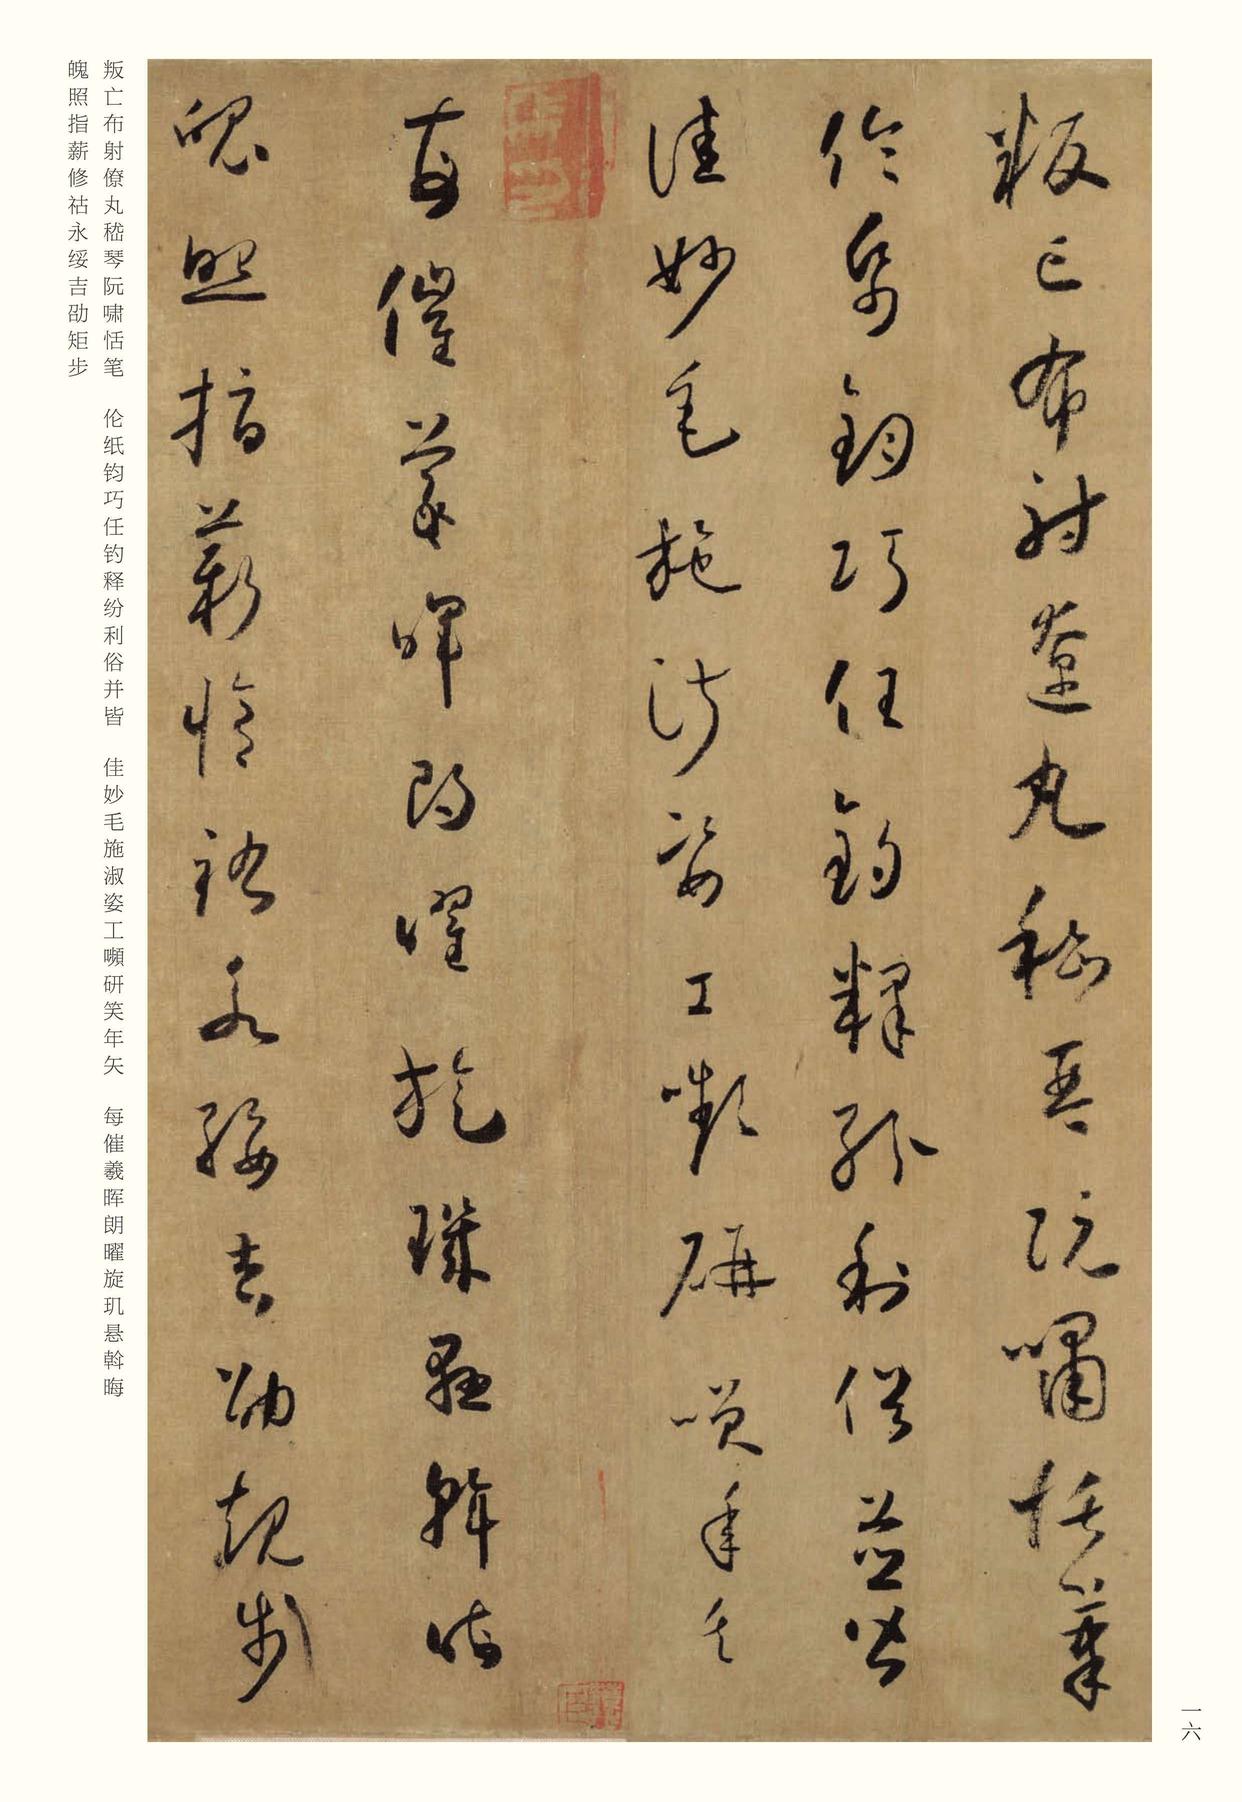 叛亡布射遼丸嵇琴阮嘯恬筆
倫紙鈞巧任釣釋紛利俗並皆
佳妙毛施淑姿工嚬研笑年矢
每催羲暉朗曜旋璣懸斡晦
魄照指薪修祜永綏吉劭矩步
叛亡布射僚丸嵇琴阮啸恬笔　伦纸钧巧任钓释纷利俗并皆　佳妙毛施淑姿工嚬研笑年矢　每催羲晖朗曜旋玑悬斡晦
魄照指薪修祜永绥吉劭矩步
一六